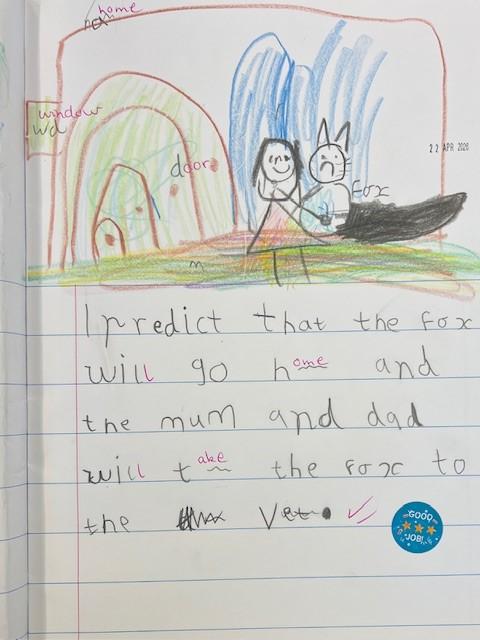 home
window
wd
door
22 APR 2026
Fox
I predict that the fox
will go home and
the mum and dad
will take the fox to
the Vet.
GOOD
JOB!